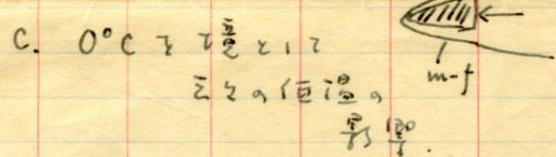 C. 0°C を境として
色々の恒温の
影響.
m-f